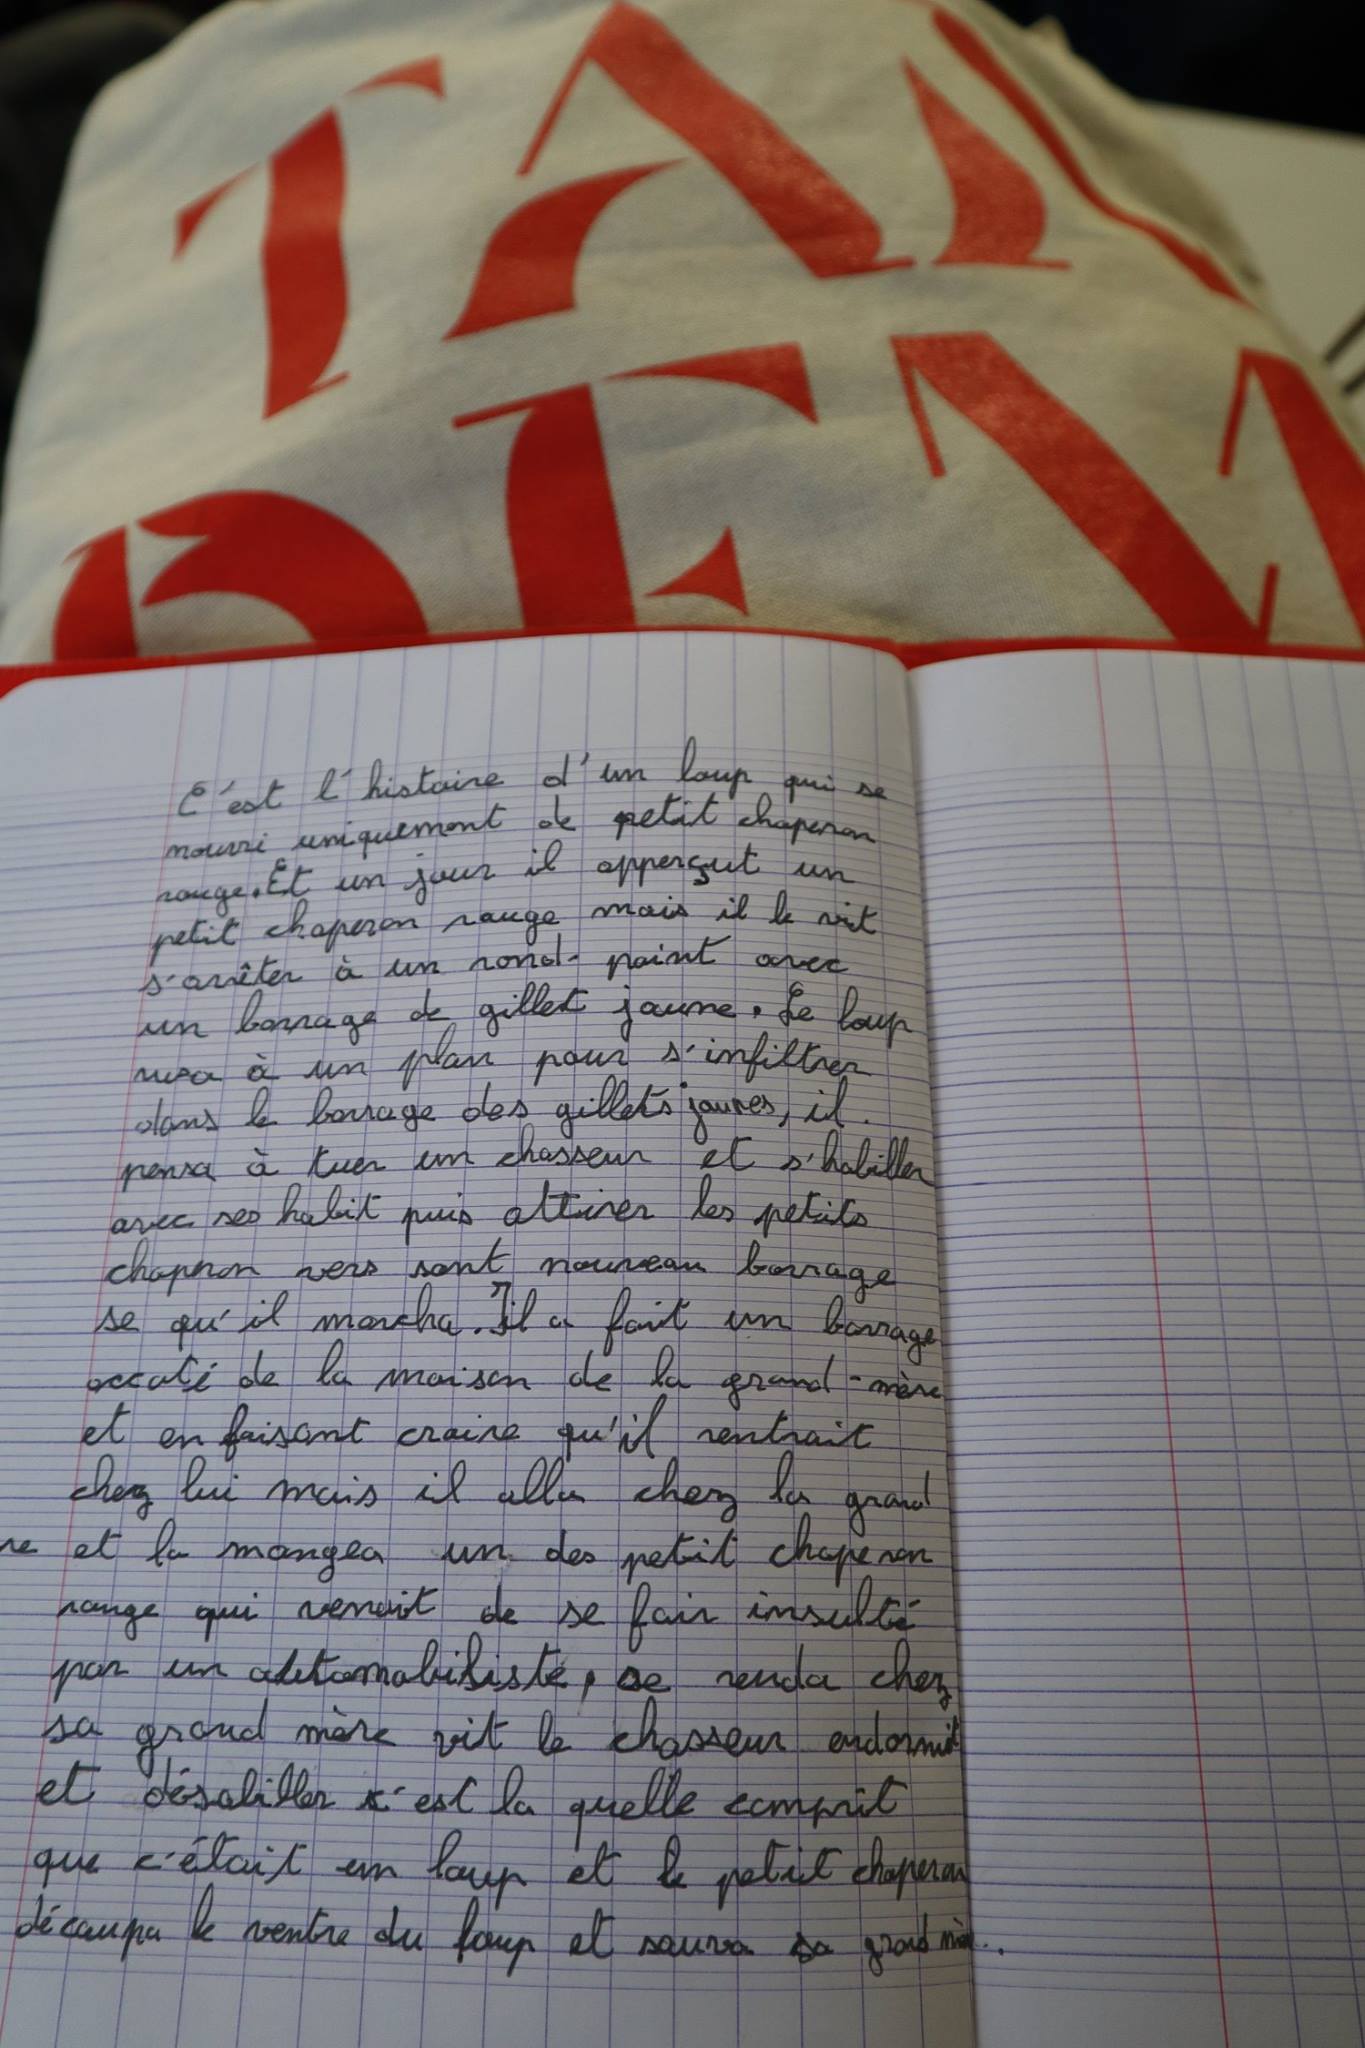 TAN
DEM
C'est l'histoire d'un loup qui se
nourri uniquement de petit chaperon
rouge. Et un jour il apperçut un
petit chaperon rouge mais il le vit
s'arrêter à un rond-point avec
un barrage de gillet jaune. Le loup
rusa à un plan pour s'infiltrer
dans le barrage des gillets jaunes, il
pensa à tuer un chasseur et s'habiller
avec ses habit puis attirer les petits
chapron vers sont nouveau barrage
se qu'il marcha. Il a fait un barrage
accoté de la maison de la grand-mère
et en faisant craire qu'il rentrait
chez lui mais il alla chez la grand
re et la mangea un des petit chaperon
rouge qui venait de se fair insulté
par un automobiliste, se renda chez
sa grand mère vit le chasseur endormit
et désabiller c'est la quelle comprit
que c'était un loup et le petit chaperon
découpa le ventre du loup et sauva sa grand mère..